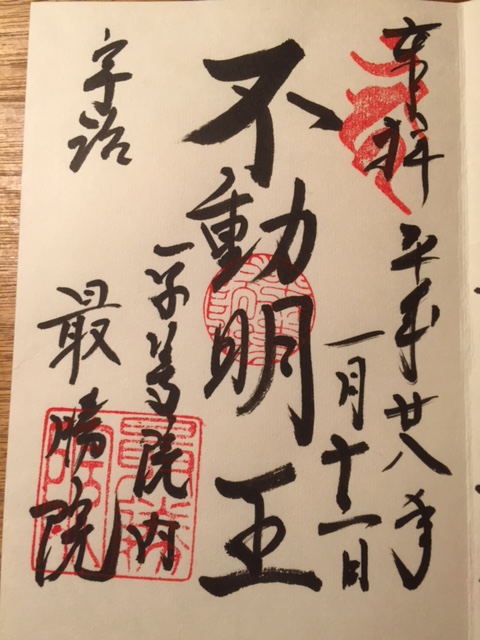 奉拝 平成廿八年
一月十一日
不動明王
平等院内
宇治 最勝院